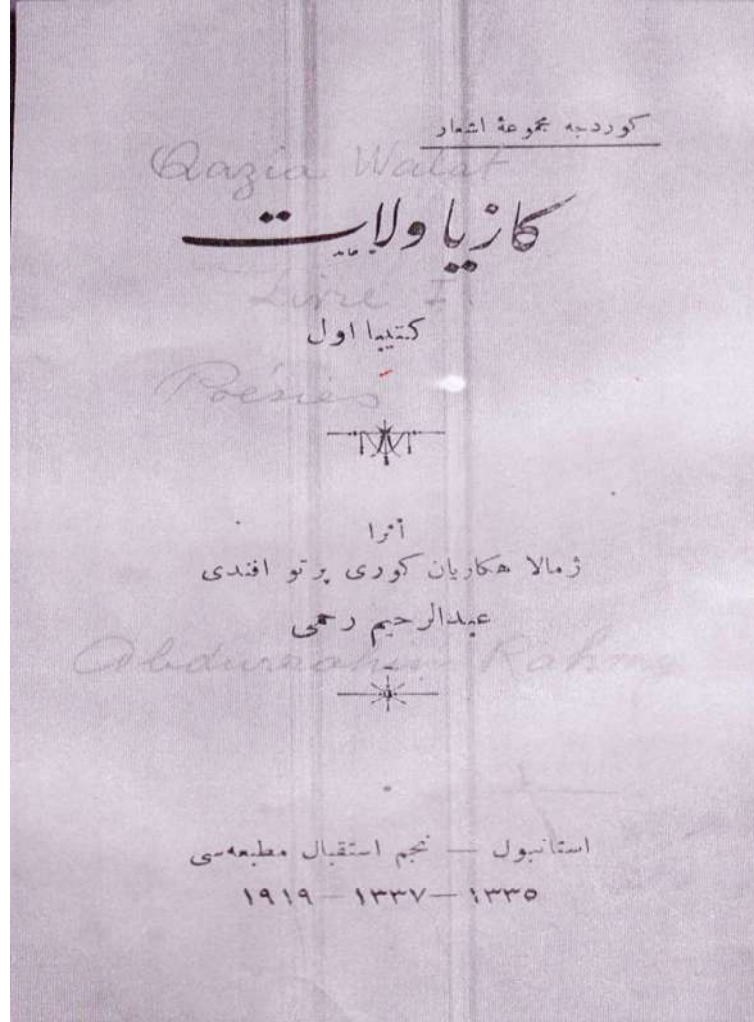 كوردجه مجموعۀ اشعار
Qazia Walat
كازيا ولات
Livre I.
كتيبا اول
Poésies
أثرا
ژمالا هكاريان كورى پرتو افندى
عبدالرحيم رحمى
Abdurrahim Rahmy
استانبول — نجم استقبال مطبعه‌سى
١٣٣٥ — ١٣٣٧ — ١٩١٩